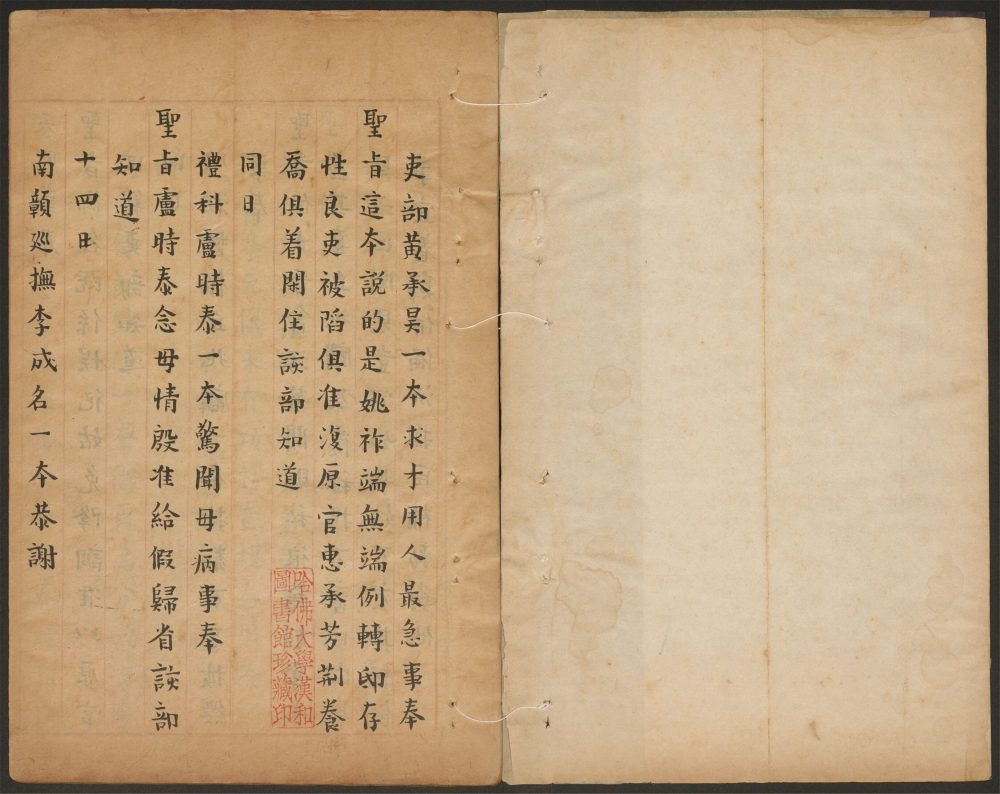 吏部黄承昊一本求才用人最急事奉
聖旨這本説的是姚祚端無端例轉邸存
性良吏被陷俱准復原官惠承芳荆養
喬俱着閑住該部知道
同日
禮科盧時泰一本驚聞母病事奉
聖旨盧時泰念母情殷准給假歸省該部
知道
十四日
南贑廵撫李成名一本恭謝
哈佛大學漢和
圖書館珍藏印